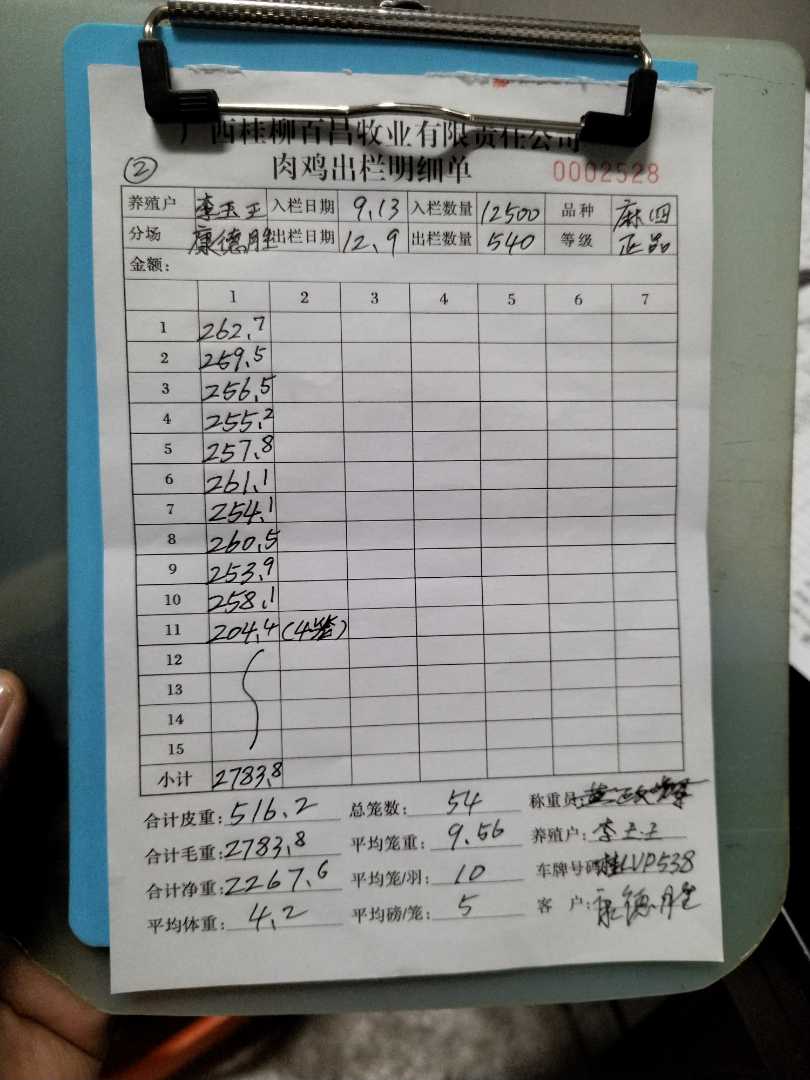 广西桂柳百昌牧业有限责任公司
肉鸡出栏明细单
② 0002528
养殖户 李玉王 入栏日期 9.13 入栏数量 12500 品种 麻四
分场 康德胜 出栏日期 12.9 出栏数量 540 等级 正品
金额:
1 2 3 4 5 6 7
1 262.7
2 259.5
3 256.5
4 255.2
5 257.8
6 261.1
7 254.1
8 260.5
9 253.9
10 258.1
11 204.4 (4笼)
12
13
14
15
小计 2783.8
合计皮重: 516.2 总笼数: 54 称重员:
合计毛重: 2783.8 平均笼重: 9.56 养殖户: 李玉王
合计净重: 2267.6 平均笼/羽: 10 车牌号码: 桂LVP538
平均体重: 4.2 平均磅/笼: 5 客户: 康德胜